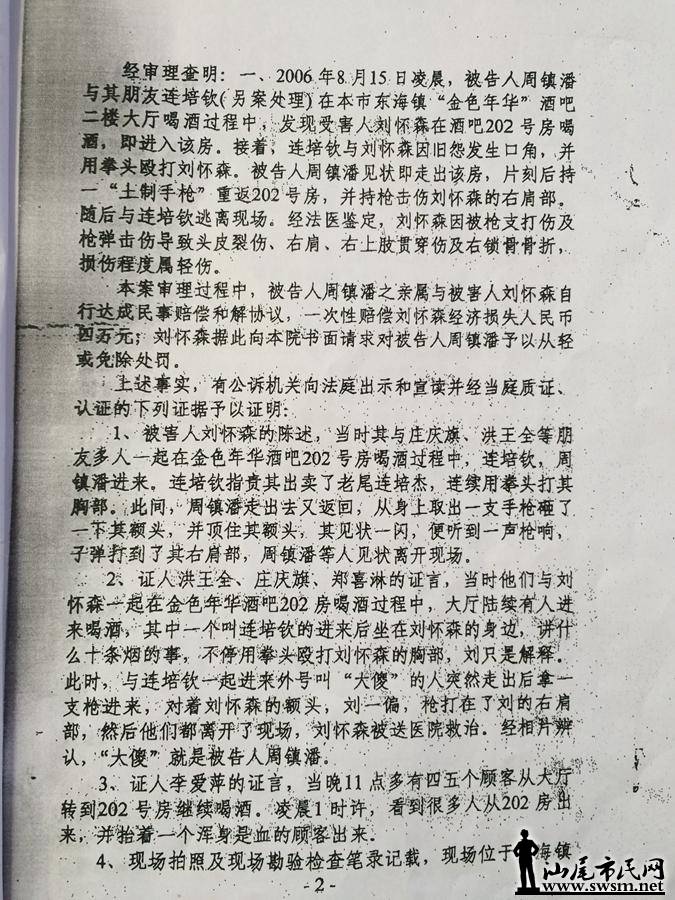 经审理查明：一、2006年8月15日凌晨，被告人周镇潘
与其朋友连培钦(另案处理)在本市东海镇“金色年华”酒吧
二楼大厅喝酒过程中，发现受害人刘怀森在酒吧202号房喝
酒，即进入该房。接着，连培钦与刘怀森因旧怨发生口角，并
用拳头殴打刘怀森。被告人周镇潘见状即走出该房，片刻后持
一“土制手枪”重返202号房，并持枪击伤刘怀森的右肩部。
随后与连培钦逃离现场。经法医鉴定，刘怀森因被枪支打伤及
枪弹击伤导致头皮裂伤、右肩、右上肢贯穿伤及右锁骨骨折，
损伤程度属轻伤。
本案审理过程中，被告人周镇潘之亲属与被害人刘怀森自
行达成民事赔偿和解协议，一次性赔偿刘怀森经济损失人民币
四万元；刘怀森据此向本院书面请求对被告人周镇潘予以从轻
或免除处罚。
上述事实，有公诉机关向法庭出示和宣读并经当庭质证、
认证的下列证据予以证明：
1、被害人刘怀森的陈述，当时其与庄庆旗、洪王全等朋
友多人一起在金色年华酒吧202号房喝酒过程中，连培钦，周
镇潘进来。连培钦指责其出卖了老尾连培杰，连续用拳头打其
胸部。此间，周镇潘走出去又返回，从身上取出一支手枪砸了
一下其额头，并顶住其额头，其见状一闪，便听到一声枪响，
子弹打到了其右肩部，周镇潘等人见状离开现场。
2、证人洪王全、庄庆旗、郑喜淋的证言，当时他们与刘
怀森一起在金色年华酒吧202房喝酒过程中，大厅陆续有人进
来喝酒，其中一个叫连培钦的进来后坐在刘怀森的身边，讲什
么十条烟的事，不停用拳头殴打刘怀森的胸部，刘只是解释。
此时，与连培钦一起进来外号叫“大傻”的人突然走出后拿一
支枪进来，对着刘怀森的额头，刘一偏，枪打在了刘的右肩
部，然后他们都离开了现场，刘怀森被送医院救治。经相片辨
认，“大傻”就是被告人周镇潘。
3、证人李爱萍的证言，当晚11点多有四五个顾客从大厅
转到202号房继续喝酒。凌晨1时许，看到很多人从202房出
来，并抬着一个浑身是血的顾客出来。
4、现场拍照及现场勘验检查笔录记载，现场位于海镇
- 2 -
汕尾市民网
www.swsm.net